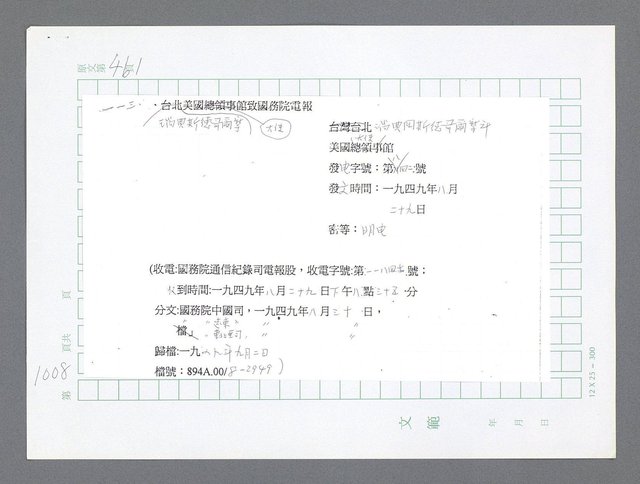 原文第461頁
一一三、台北美國總領事館致國務院電報
瑞典斯德哥爾摩
大使
台灣台北
瑞典國斯德哥爾摩
大使
美國總領事館
發電字號：第 號
發文時間：一九四九年八月
二十九日
密等：明電
(收電:國務院通信紀錄司電報股，收電字號:第 號；
收到時間:一九四九年八月二十九日下午八點三十五分
分文:國務院中國司，一九四九年八月三十日，
檔
歸檔:一九 年九月二日
檔號：894A.00/8-2949)
頁
頁共
1008
第
12 X 25 = 300
文 範
年 月 日